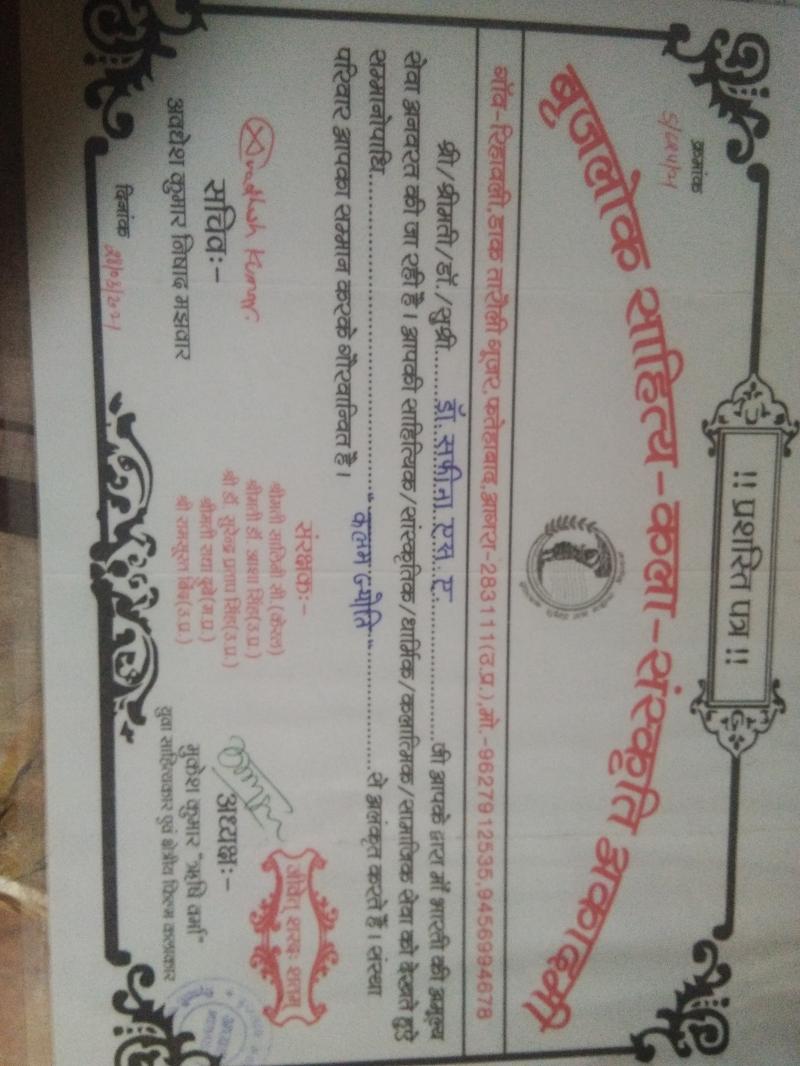 !! प्रशस्ति पत्र !!
क्रमांक
बृजलोक साहित्य-कला-संस्कृति अकादमी
गाँव-रिहावली, डाक तारौली गूजर, फतेहाबाद, आगरा-283111(उ.प्र.), मो.-9627912535, 9456994678
श्री/श्रीमती/डॉ./सुश्री........डॉ. सफीना एस ए........जी आपके द्वारा माँ भारती की अमूल्य
सेवा अनवरत की जा रही है। आपकी साहित्यिक/सांस्कृतिक/धार्मिक/कलात्मिक/सामाजिक सेवा को देखते हुऐ
सम्मानोपाधि........"कलम ज्योति"........से अलंकृत करते हैं। संस्था
परिवार आपका सम्मान करके गौरवान्वित है।
Avadhesh Kumar
सचिवः-
अवधेश कुमार निषाद मझवार
दिनांक
संरक्षकः-
श्रीमती सावित्री जी (केरल)
श्रीमती डॉ. आशा सिंह (उ.प्र.)
श्री डॉ. सुरेन्द्र प्रताप सिंह (उ.प्र.)
श्रीमती राधा दुबे (म.प्र.)
श्री रामसूरत बिंद (उ.प्र.)
जीवेम् शरदः शतम
अध्यक्षः-
मुकेश कुमार "ऋषि वर्मा"
युवा साहित्यकार एवं क्षेत्रीय फिल्म कलाकार